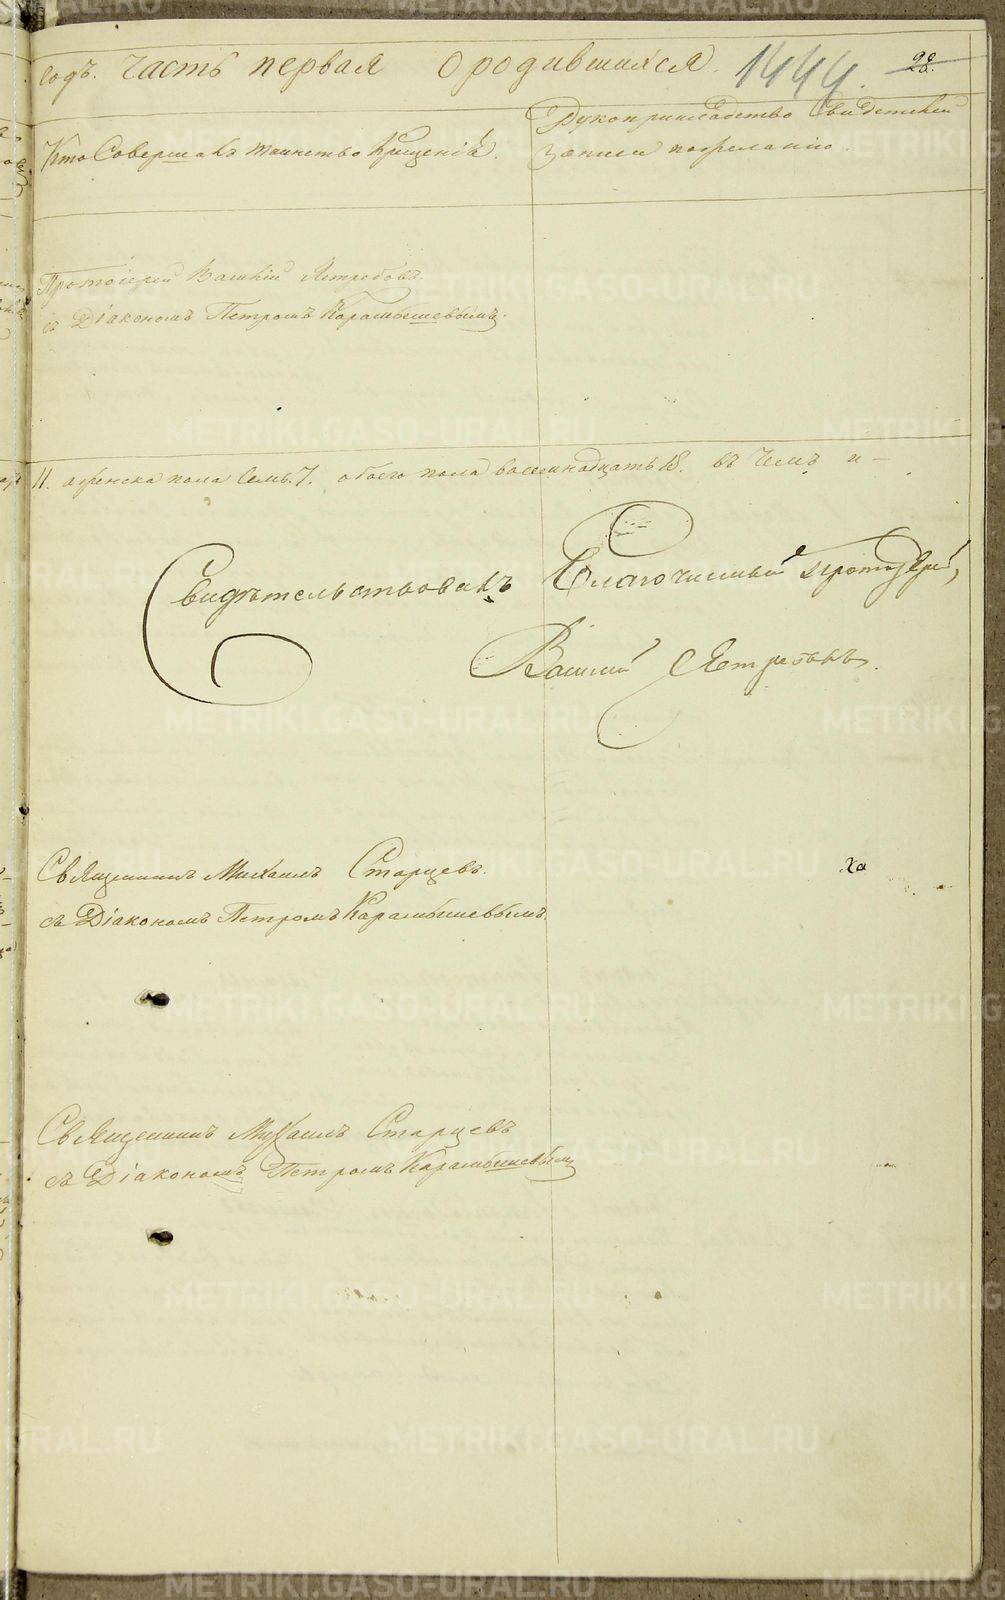 годъ. Часть первая о родившихся. 1444. 28.
Кто Совершалъ таинство крещенія.
Рукоприкладство Свидетелей
записи по желанію.
Протоіерей Василій Ястребовъ
съ Діакономъ Петромъ Карамышевымъ.
11. а женска пола Семь. 7. обоего пола восемнадцать 18. въ чемъ и —
Свидѣтельствовалъ Благочинный Протоіерей,
Василій Ястребовъ.
Священникъ Михаилъ Старцевъ.
съ Діакономъ Петромъ Карамышевымъ.
Ха
Священникъ Михаилъ Старцевъ
съ Діакономъ Петромъ Карамышевымъ
METRIKI.GASO-URAL.RU